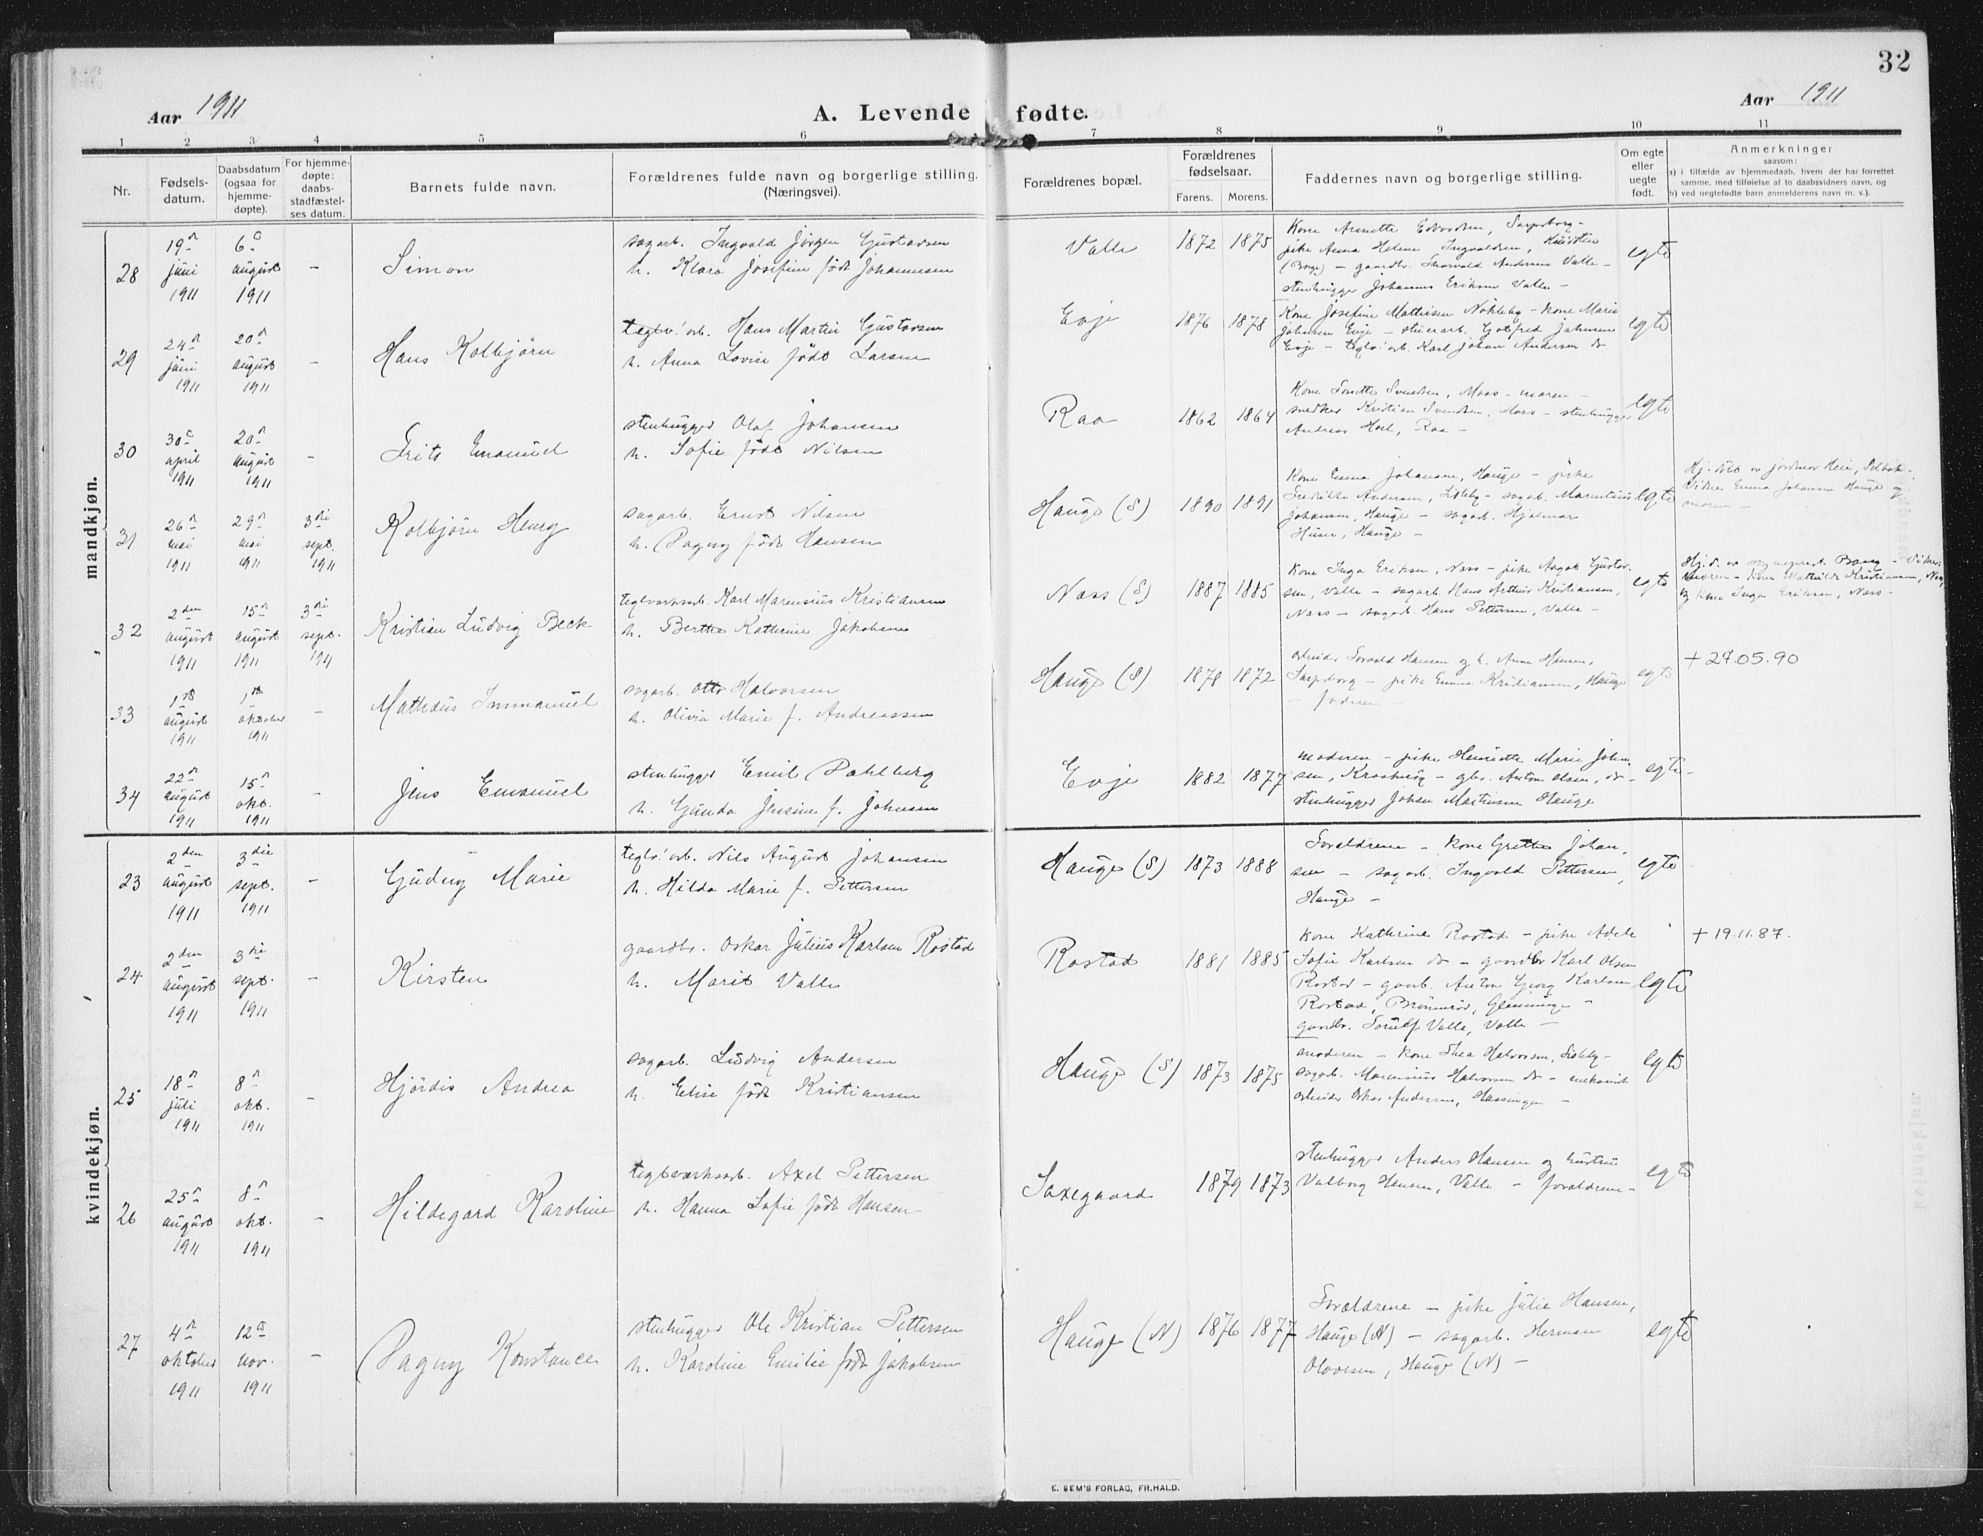 32
Aar 1911
A. Levende fødte.
Aar 1911
1 2 3 4 5 6 7 8 9 10 11
Nr.
Fødsels-
datum.
Daabsdatum
(ogsaa for
hjemme-
døpte).
For hjemme-
døpte:
daabs-
stadfæstel-
ses datum.
Barnets fulde navn.
Forældrenes fulde navn og borgerlige stilling.
(Næringsvei).
Forældrenes bopæl.
Forældrenes
fødselsaar.
Farens. Morens.
Faddernes navn og borgerlige stilling.
Om egte
eller
uegte
født.
Anmerkninger
saasom:
a) i tilfælde av hjemmedaab, hvem der har forrettet
samme, med tilføielse af to daabsvidners navn, og
b) ved uegtefødte børn anmelderens navn m. v.).
mandkjøn.
28
19de juni 1911
6te august 1911
-
Simon
sagarb. Ingvald Jørgen Gustavsen
h. Klara Josefine født Johannesen
Valle
1872 1875
Kone Annette Edvardsen, Sarpsborg -
pike Anna Helene Ingvaldsen,
(Borge) - gaardbr. Thorvald Andersen Valle -
stenhugger Johannes Eriksen Valle -
egte
29
24de juni 1911
20de august 1911
-
Hans Kolbjørn
teglv.arb. Hans Martin Gustavsen
h. Anna Lovise født Larsen
Evje
1876 1878
Kone Josefine Mathisen Nökleby - kone Marie
Johansen Evje - stenarb. Gotfred Johansen
Evje - teglv.arb. Karl Johan Andersen do
egte
30
30te april 1911
20de august 1911
-
Frits Emanuel
stenhugger Olaf Johansen
h. Sofie født Nilsen
Raa
1862 1864
Kone Svendsen, Moss - moren -
snedker Kristian Svendsen, Moss - stenhugger
Andreas Hoel, Raa -
egte
31
26de mai 1911
29de mai 1911
3die sept. 1911
Kolbjörn Henry
sagarb. Ernst Nilsen
h. Dagny født Hansen
Hauge (S)
1890 1891
Kone Emma Johansen, Hauge - pike
Fredrikke Andersen, Lisleby - sagarb. Marentius
Johansen, Hauge - sagarb. Hjalmar
Hauge -
egte
Hj. døbt av jordmor Heie, Selbak.
Vidner Emma Johansen Hauge og
moren -
32
2den august 1911
15de august 1911
3die sept. 1911
Kristian Ludvig Beck
teglverksarb. Karl Marensius Kristiansen
h. Berthe Kathrine Jakobsen
Næss (S)
1887 1885
Kone Inga Eriksen, Næss - pike Aagot Gustav-
sen, Valle - sagarb. Hans Arthur Kristiansen,
Næss - sagarb. Hans Pettersen, Valle -
egte
Hj. d. av sogneprest Bang - Vidner:
moren - kone Mathilde Kristiansen, Næs,
og kone Inga Eriksen, Næss -
33
1ste august 1911
1ste oktober 1911
-
Mathæus Immanuel
sagarb. Otto Halvorsen
h. Olivia Marie f. Andreassen
Hauge (S)
1878 1872
arbeider Torvald Hansen og h. Anna Hansen,
Sarpsborg - pike Emma Kristiansen, Hauge
- faderen -
egte
+ 27.05.90
34
22de august 1911
15de okt. 1911
-
Jens Emanuel
stenhugger Emil Dahlberg
h. Gunda Jensine f. Johnsen
Evje
1882 1877
moderen - pike Henriette Marie John-
sen, - gbr. Anton Olsen, do -
stenhugger Johan Martinsen Hauge
egte -
kvindekjøn.
23
2den august 1911
3die sept. 1911
-
Gudny Marie
teglv.arb. Nils August Johansen
h. Hilda Marie f. Pettersen
Hauge (S)
1873 1888
Forældrene - kone Grethe Johan-
sen - sagarb. Ingvald Pettersen,
Hauge -
egte
24
2den august 1911
3die sept. 1911
-
Kirsten
gaardbr. Oskar Julius Karlsen Rostad
h. Marit Valle
Rostad
1881 1885
Kone Kathrine Rostad - pike Adele
Sofie Karlsen do - gaardbr Karl Olsen
Rostad - gaarb. Anton Georg Karlsen
Rostad, Glemminge -
gaardbr. Torulf Valle, Valle -
egte
+ 19.11.87.
25
18de juli 1911
8de okt. 1911
-
Hjördis Andrea
sagarb. Ludvig Andersen
h. Elise født Kristiansen
Hauge (S)
1873 1875
moderen - kone Thea Halvorsen, Lisleby -
sagarb. Marensius Halvorsen do - mekanisk
arbeider Oskar Andersen, Hassingen -
egte
26
25de august 1911
8de okt. 1911
-
Hildegard Karoline
teglverksarb. Axel Pettersen
h. Hanna Sofie født Hansen
Saxegaard
1879 1873
stenhugger Anders Hansen og hustru
Valborg Hansen, Valle - forældrene -
egte
27
4de oktober 1911
12te nov. 1911
-
Dagny Konstance
stenhugger Ole Kristian Pettersen
h. Karoline Emilie født Jakobsen
Hauge (N)
1876 1877
Forældrene - pike Julie Hansen,
Hauge (N) - sagarb. Herman
Olavesen, Hauge (N) -
egte
E. SEM'S FORLAG, FR.HALD.